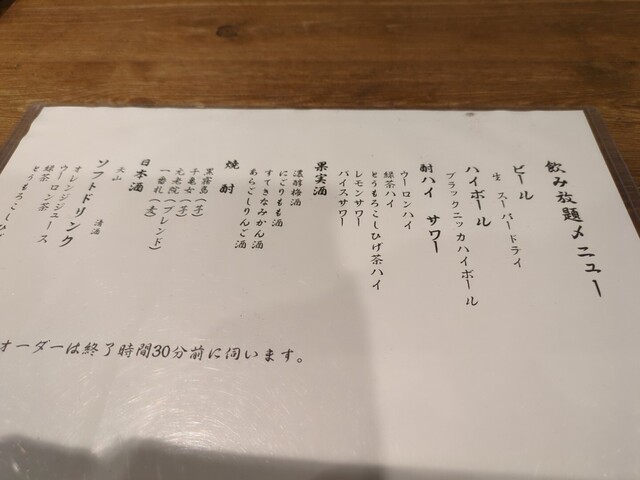 飲み放題メニュー
ビール
生 スーパードライ
ハイボール
ブラックニッカハイボール
酎ハイ サワー
ウーロンハイ
緑茶ハイ
とうもろこしひげ茶ハイ
レモンサワー
バイスサワー
果実酒
濃醇梅酒
にごりもも酒
すてきなみかん酒
あらごしりんご酒
焼酎
黒霧島(芋)
千亀女(芋)
元老院(ブレンド)
一番札(麦)
日本酒
大山
清酒
ソフトドリンク
オレンジジュース
ウーロン茶
緑茶
とうもろこしひ
オーダーは終了時間30分前に伺います。